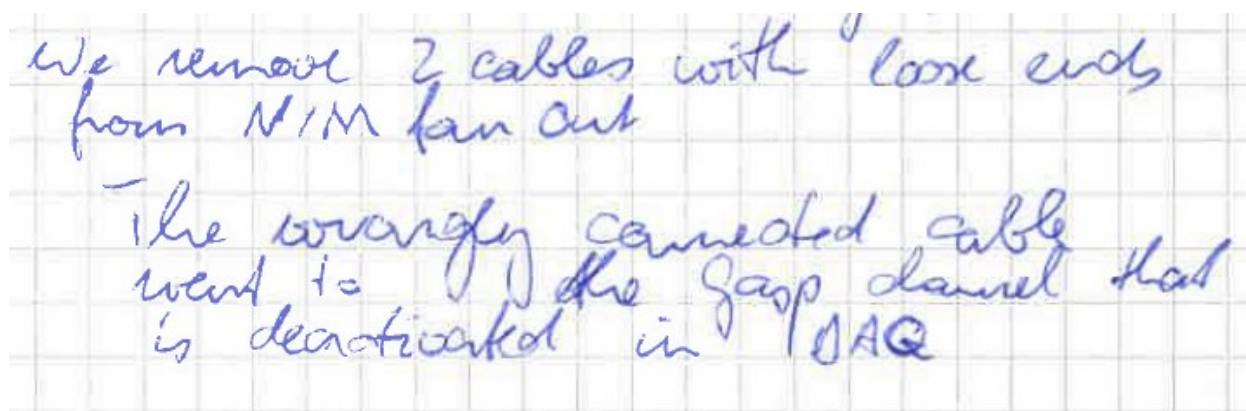 We remove 2 cables with loose ends
from NIM fan out
The wrongly connected cable
went to the Gasp channel that
is deactivated in DAQ